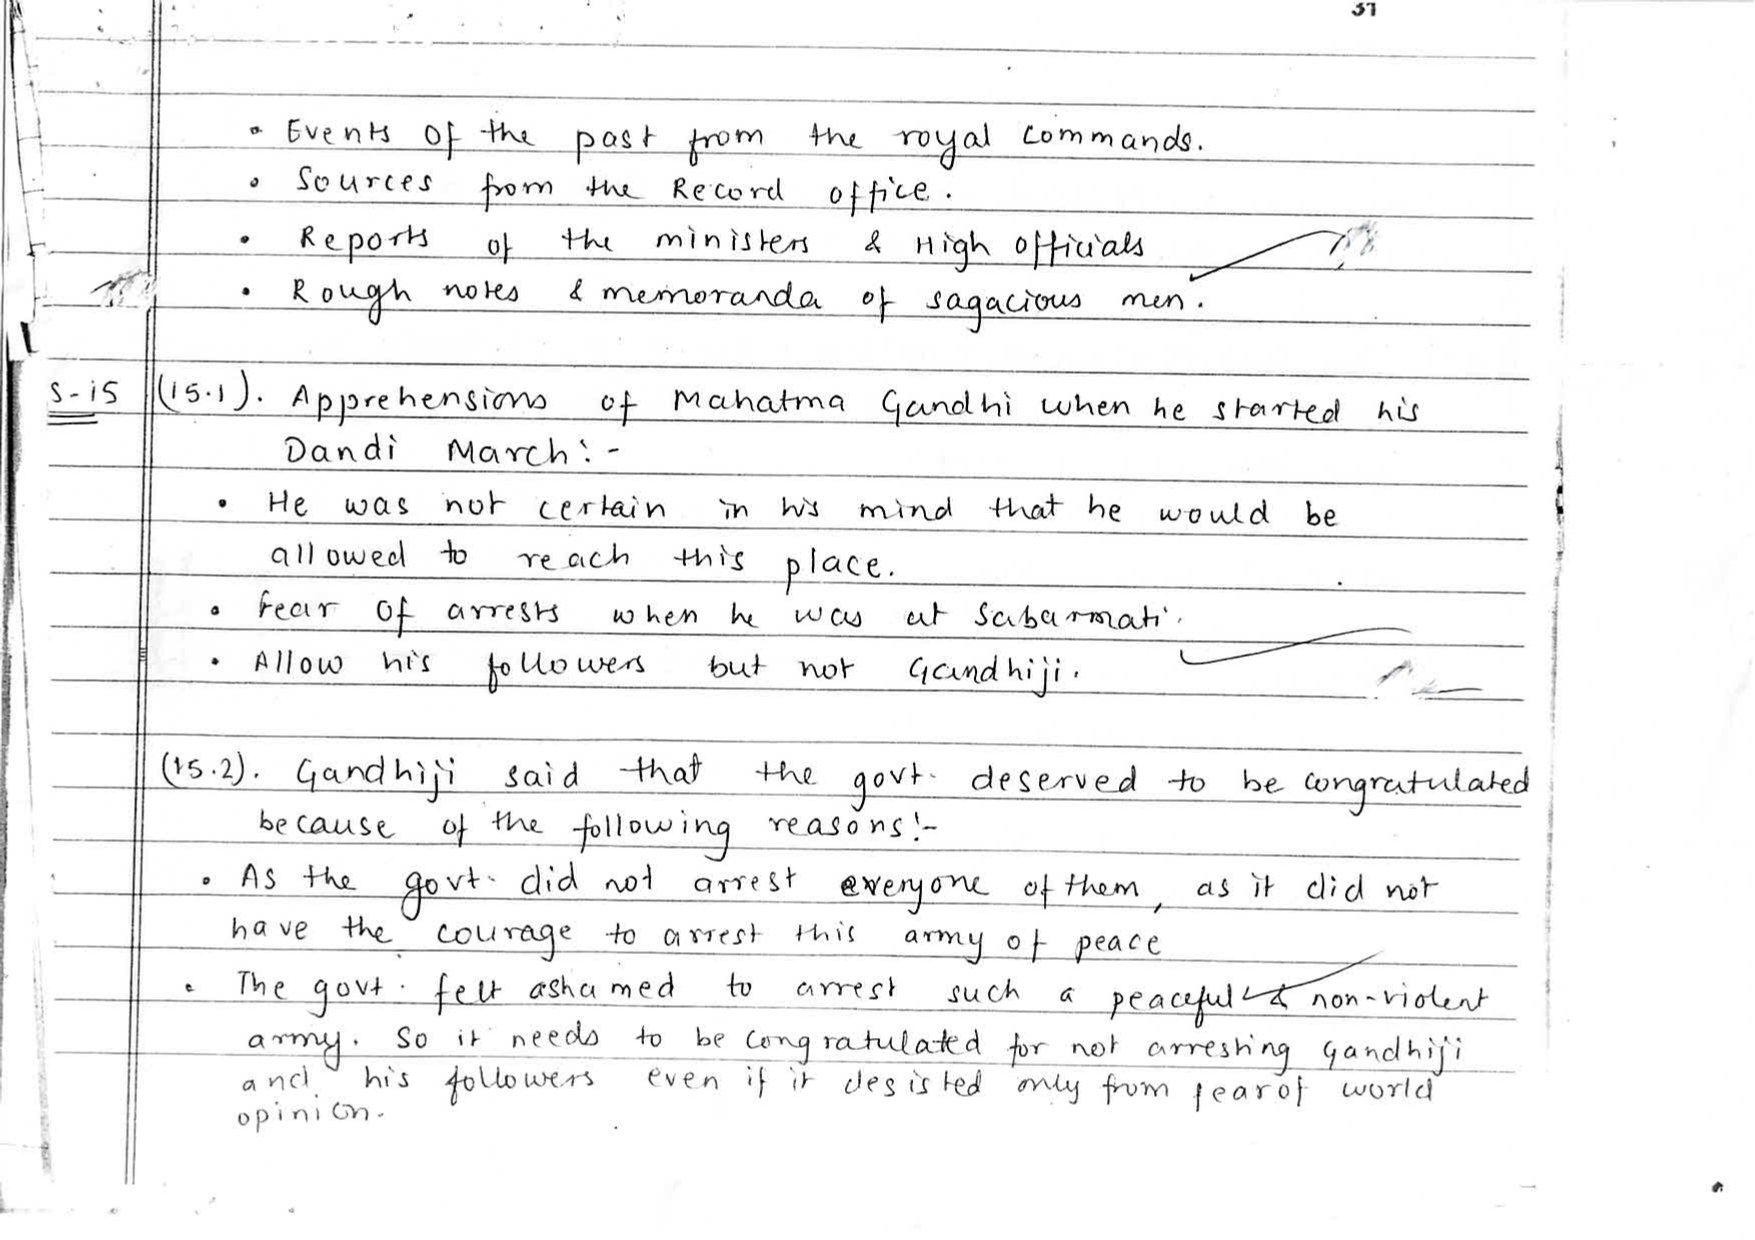 31
• Events of the past from the royal commands.
• Sources from the Record office.
• Reports of the ministers & High officials
• Rough notes & memoranda of sagacious men.
S-15 (15.1). Apprehensions of Mahatma Gandhi when he started his
Dandi March:-
• He was not certain in his mind that he would be
allowed to reach this place.
• Fear of arrests when he was at Sabarmati.
• Allow his followers but not Gandhiji.
(15.2). Gandhiji said that the govt. deserved to be congratulated
because of the following reasons:-
• As the govt. did not arrest everyone of them, as it did not
have the courage to arrest this army of peace
• The govt. felt ashamed to arrest such a peaceful & non-violent
army. So it needs to be congratulated for not arresting Gandhiji
and his followers even if it desisted only from fear of world
opinion.